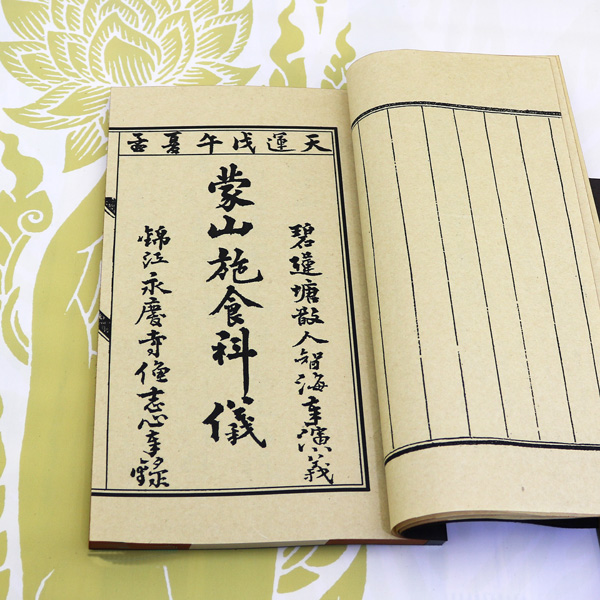 天運戊午
碧蓮塘散人智海奉演義
蒙山施食科儀
錦江永慶寺僧志心奉錄